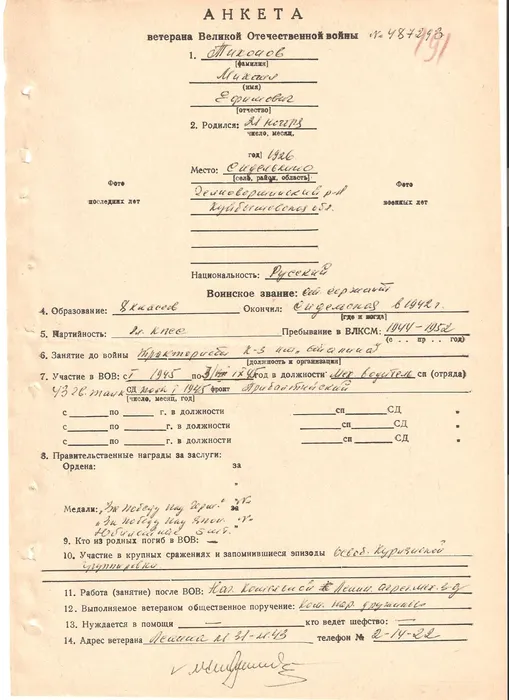 АНКЕТА
ветерана Великой Отечественной войны № 487293
191
1. Тихонов
[фамилия]
Михаил
(имя)
Ефимович
[отчество]
2. Родился: 21 ноября
число, месяц,
год 1926
Место: Сиделькино
[село, район, область]
Челновершинский р-н
Куйбышевская обл.
Фото
последних лет
Фото
военных лет
Национальность: Русский
Воинское звание: ст. сержант
4. Образование: 8 классов Окончил: в 1942 г.
[где и когда]
5. Партийность: чл. КПСС Пребывание в ВЛКСМ: 1944-1952
(с . . пр . . год)
6. Занятие до войны Тракторист к-з им. Сталина
[должность и организация]
7. Участие в ВОВ: с I 1945 по IX 45 год в должности мех. водитель сп (отряда)
43 гв. танк. СД 1945 фронт Прибалтийский
[число, месяц, год]
с по г. в должности сп СД "
с по г. в должности сп СД "
с по г. в должности сп СД "
8. Правительственные награды за заслуги:
Ордена: за
"
Медали: "За победу над Герм." №
за
"За победу над Япон. №
Юбилейные 5 шт.
9. Кто из родных погиб в ВОВ: —
10. Участие в крупных сражениях и запомнившиеся эпизоды Освоб. Курляндской
группировки
11. Работа (занятие) после ВОВ: Нач. котельной
12. Выполняемое ветераном общественное поручение: Ком. нар. дружины
13. Нуждается в помощи — кто ведет шефство: —
14. Адрес ветерана Ленина № 31-№ 43 телефон № 2-14-22